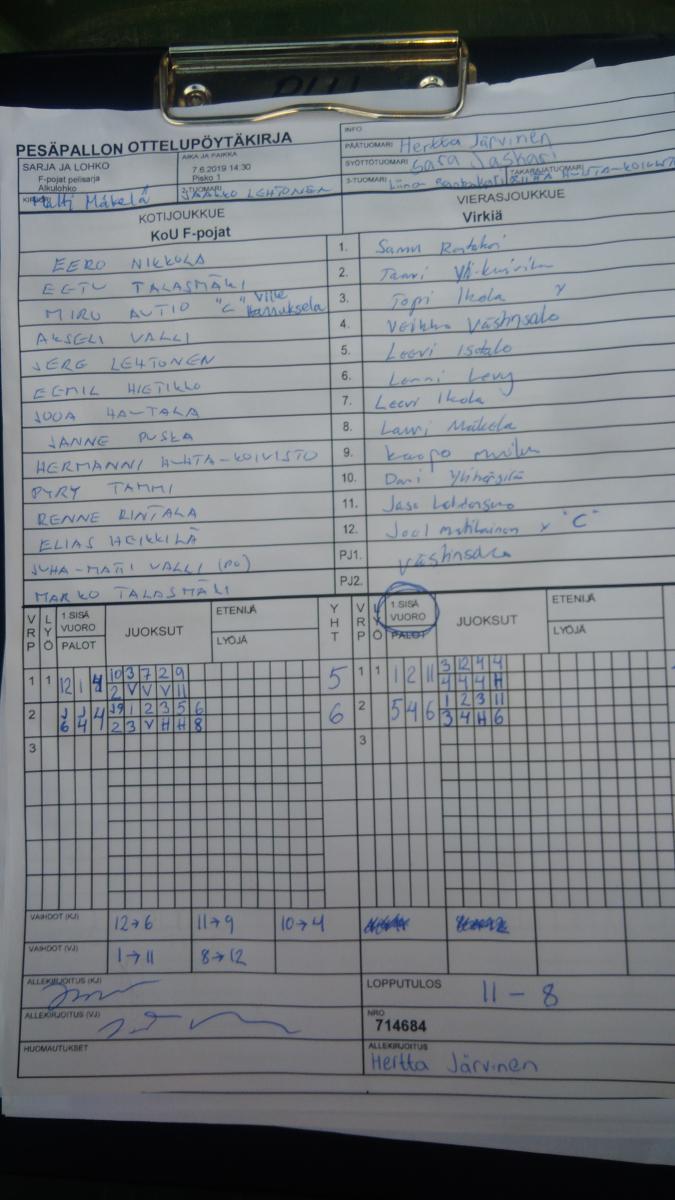 PESÄPALLON OTTELUPÖYTÄKIRJA
INFO
SARJA JA LOHKO
F-pojat pelisarja
Alkulohko
AIKA JA PAIKKA
7.6.2019 14:30
Pisko 1
PÄÄTUOMARI Hertta Järvinen
SYÖTTÖTUOMARI Sara Jaskari
Matti Mäkelä
2-TUOMARI JAAKKO LEHTONEN
3-TUOMARI
TAKARAJATUOMARI
KOTIJOUKKUE
KoU F-pojat
VIERASJOUKKUE
Virkiä
EERO NIKKOLA 1. Samu
EETU TALASMÄKI 2.
MIRO AUTIO "C" Ville 3. Topi Ikola
AKSELI VALLI 4. Veikko Västinsalo
JERE LEHTONEN 5. Leevi Isotalo
EEMIL HIETIKKO 6. Lenni Levy
JOOA HAUTALA 7. Leevi Ikola
JANNE PUSKA 8. Lauri Mäkelä
HERMANNI HUHTA-KOIVISTO 9. Kaapo
PYRY TAMMI 10.
RENNE RINTALA 11.
ELIAS HEIKKILÄ 12. "C"
JUHA-MATTI VALLI (PJ) PJ1.
MARKO TALASMÄKI PJ2.
VRP LYÖ 1.SISÄ VUORO PALOT JUOKSUT ETENIJÄ LYÖJÄ YHT VRP LYÖ 1.SISÄ VUORO PALOT JUOKSUT ETENIJÄ LYÖJÄ
1 1 12 1 4 10 3 7 2 9 5 1 1 1 2 11 3 12 4 4
2 V V V 11 4 4 4 H
2 J J 4 J9 1 2 3 5 6 6 2 5 4 6 1 2 3 11
6 4 4 2 3 V H H 8 3 4 H 6
3 3
VAIHDOT (KJ) 12→6 11→9 10→4
VAIHDOT (VJ) 1→11 8→12
ALLEKIRJOITUS (KJ)
LOPPUTULOS 11 - 8
ALLEKIRJOITUS (VJ)
NRO
714684
HUOMAUTUKSET
ALLEKIRJOITUS
Hertta Järvinen